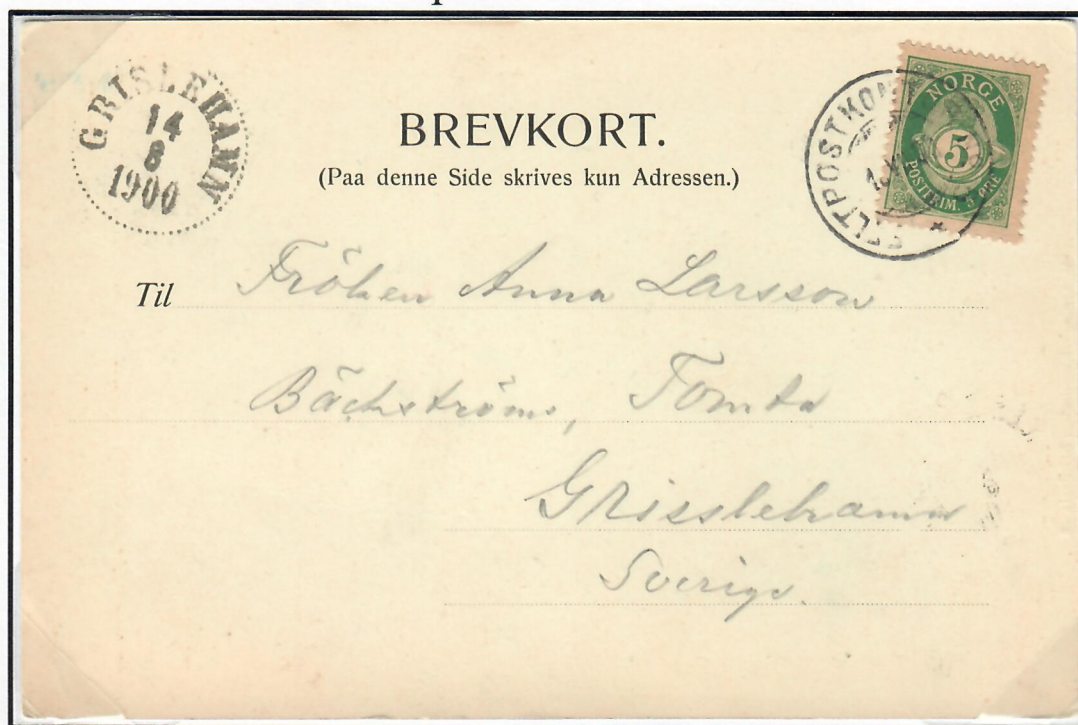 GRISLEHAMN
14
8
1900
BREVKORT.
(Paa denne Side skrives kun Adressen.)
NORGE
5
POSTFRIM. 5 ØRE
FELTPOSTKONT
Til Fröken Anna Larsson
Bäckströms, Tomta
Grisslehamn
Sverige.